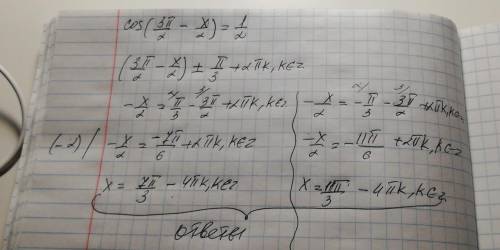 cos(3π/2 - x/2) = 1/2
(3π/2 - x/2) ± π/3 + 2πk, k∈z
-x/2 = π/3 - 3π/2 + 2πk, k∈z
(-2) / -x/2 = -7π/6 + 2πk, k∈z
x = 7π/3 - 4πk, k∈z
-x/2 = -π/3 - 3π/2 + 2πk, k∈z
-x/2 = -11π/6 + 2πk, k∈z
x = 11π/3 - 4πk, k∈z
ответы